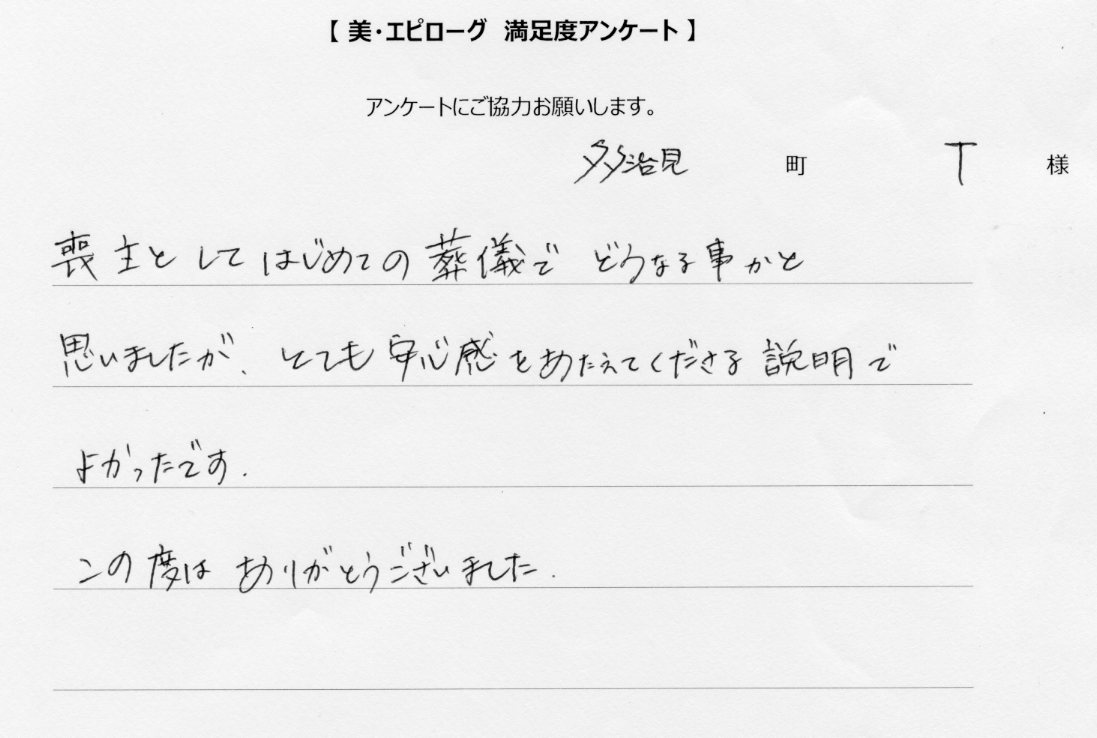 【 美・エピローグ 満足度アンケート 】
アンケートにご協力お願いします。
多治見 町 T 様
喪主としてはじめての葬儀でどうなる事かと
思いましたが、とても安心感をあたえてくださる説明で
よかったです.
この度は ありがとうございました.